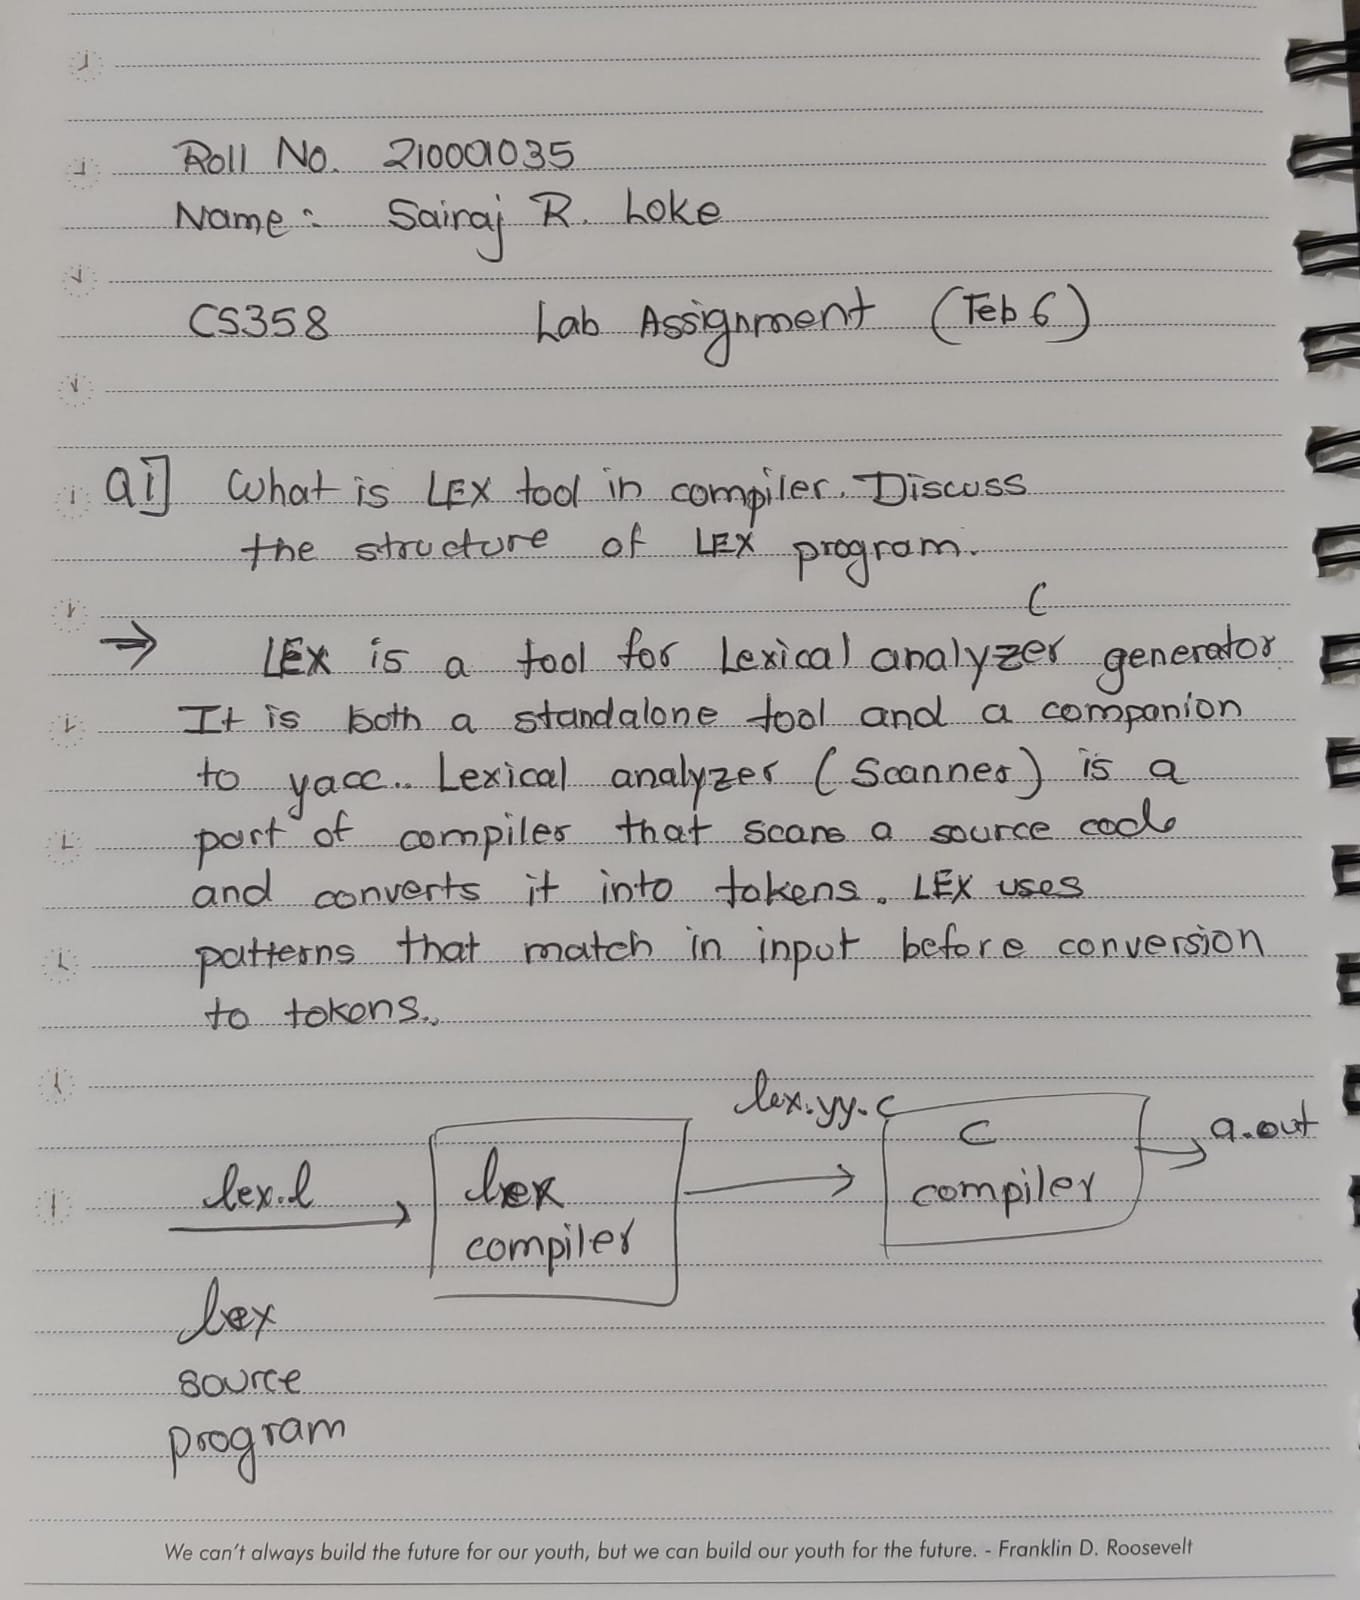 Roll No. 210001035
Name: Sairaj R. Loke
CS358 Lab Assignment (Feb 6)
Q1] What is LEX tool in compiler. Discuss
the structure of LEX program.
(
⇒ LEX is a tool for Lexical analyzer generator
It is both a standalone tool and a companion
to yacc.. Lexical analyzer (Scanner) is a
part of compiler that scans a source code
and converts it into tokens. LEX uses
patterns that match in input before conversion
to tokens..
lex.yy.c
lex.l lex C a.out
compiler compiler
lex
source
program
We can't always build the future for our youth, but we can build our youth for the future. - Franklin D. Roosevelt